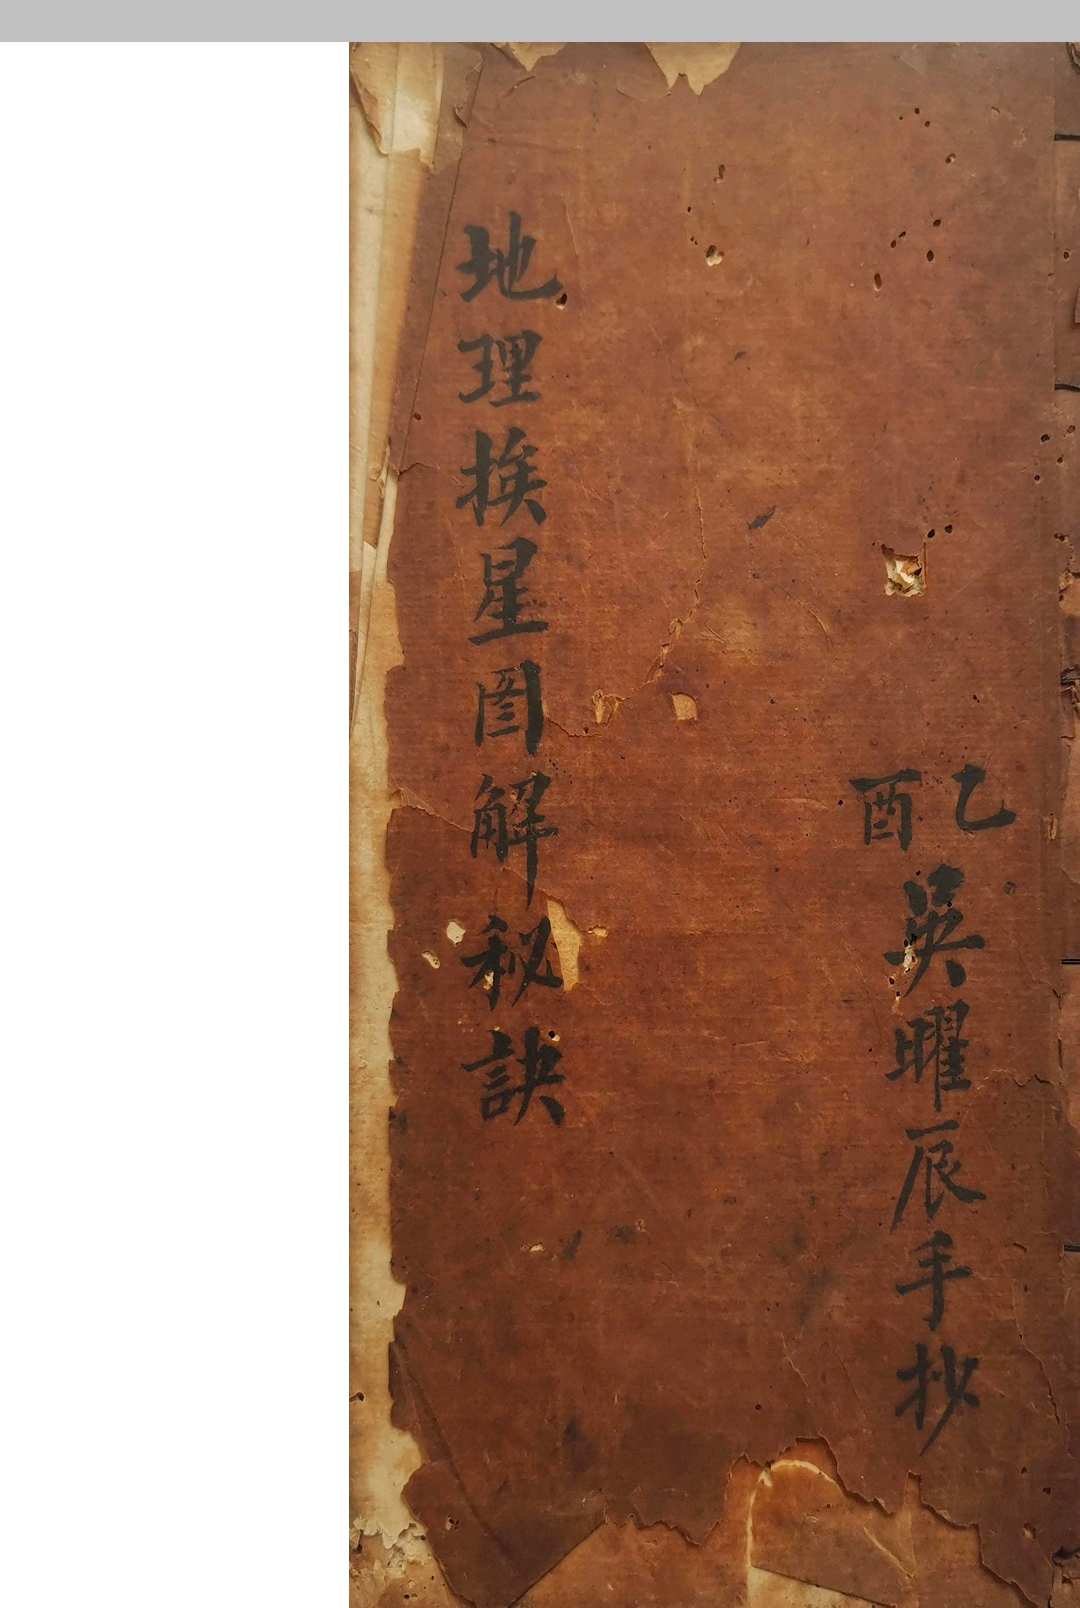 乙酉
吳曜辰手抄
地理挨星图解秘訣